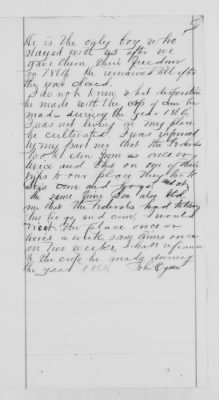 He is the only boy who
stayed with us after we
gave them their freedom
in 1864. he remained till after
the war closed.
I do not know what disposition
he made with the crop of corn he
made during the year 1864
I was not living in my place
he cultivated I was informed
by my partner that the Federals
took corn from us once or
twice and that on one of their
trips to our place they
corn and
the same time Sam also told
me that the Federals had taken
his hogs and corn, I would
the place once or
twice a week, some times once
in two weeks, I have reference
to the crop he made during
the year 1864